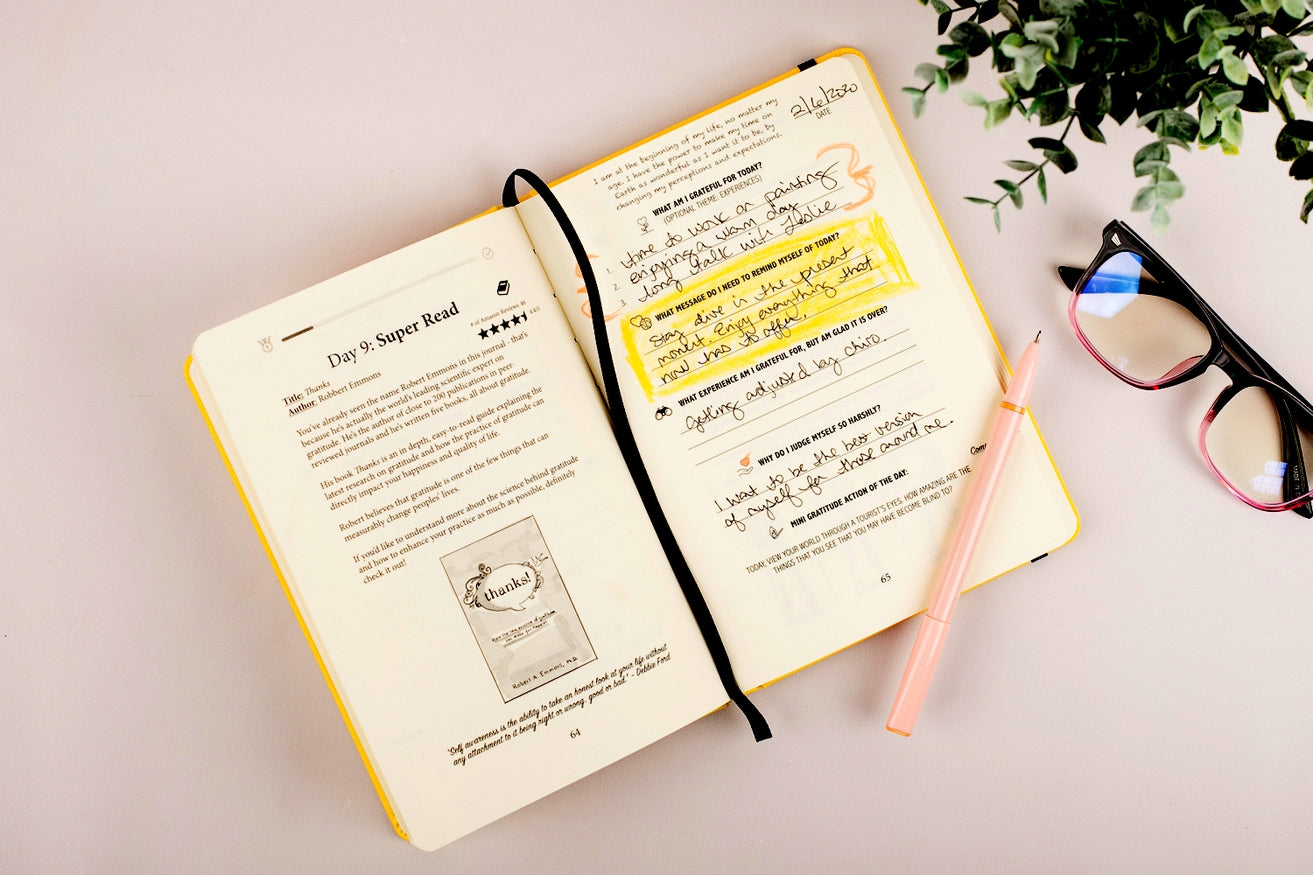 Day 9: Super Read
# of Amazon Reviews 46
4.4/5
Title: Thanks
Author: Robbert Emmons
You've already seen the name Robert Emmons in this journal - that's
because he's actually the world's leading scientific expert on
gratitude. He's the author of close to 200 publications in peer-
reviewed journals and he's written five books, all about gratitude.
His book Thanks is an in depth, easy-to-read guide explaining the
latest research on gratitude and how the practice of gratitude can
directly impact your happiness and quality of life.
Robert believes that gratitude is one of the few things that can
measurably change peoples' lives.
If you'd like to understand more about the science behind gratitude
and how to enhance your practice as much as possible, definitely
check it out!
thanks!
Robert A. Emmons, Ph.D.
"Self awareness is the ability to take an honest look at your life without
any attachment to it being right or wrong, good or bad." - Debbie Ford
64
I am at the beginning of my life, no matter my
age. I have the power to make my time on
Earth as wonderful as I want it to be, by
changing my perceptions and expectations.
2/6/2020
DATE
WHAT AM I GRATEFUL FOR TODAY?
(OPTIONAL THEME: EXPERIENCES)
1. time to work on painting
2. enjoying a warm day
3. long talk with Leslie
WHAT MESSAGE DO I NEED TO REMIND MYSELF OF TODAY?
Stay alive in the present
moment. Enjoy everything that
now has to offer.
WHAT EXPERIENCE AM I GRATEFUL FOR, BUT AM GLAD IT IS OVER?
getting adjusted by chiro.
WHY DO I JUDGE MYSELF SO HARSHLY?
I want to be the best version
of myself for those around me.
MINI GRATITUDE ACTION OF THE DAY:
TODAY, VIEW YOUR WORLD THROUGH A TOURIST'S EYES. HOW AMAZING ARE THE
THINGS THAT YOU SEE THAT YOU MAY HAVE BECOME BLIND TO?
65